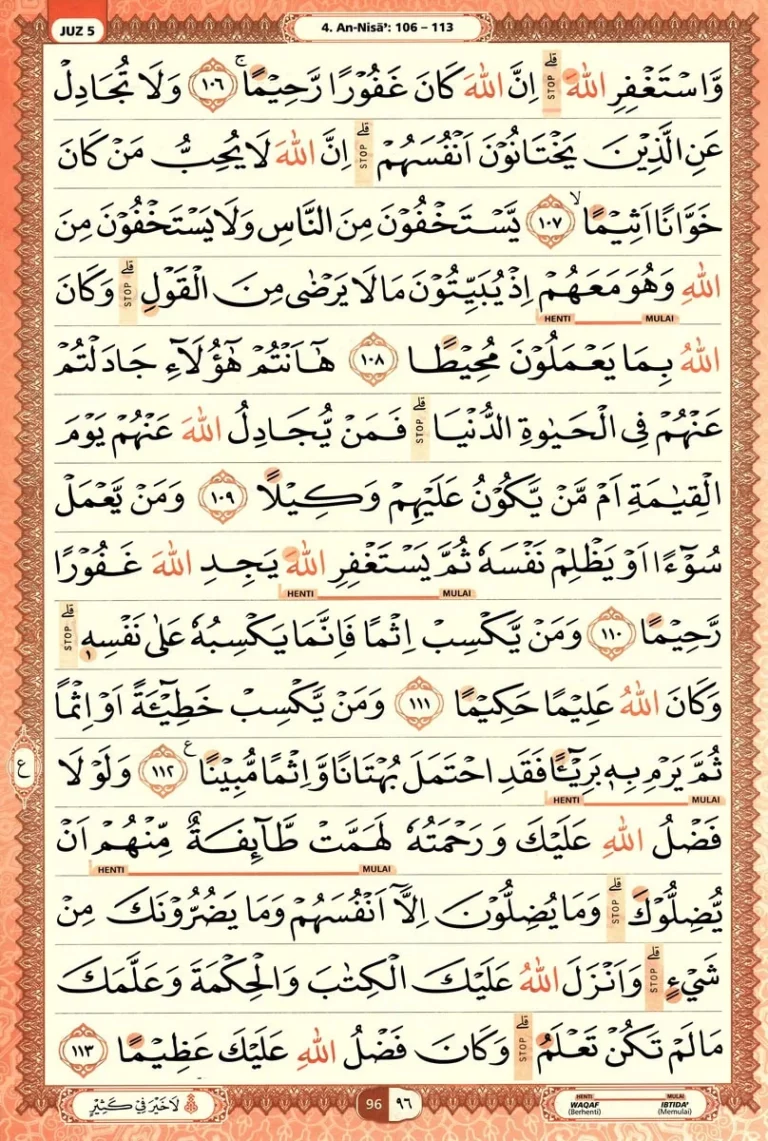 JUZ 5
4. An-Nisā': 106 – 113
وَّاسْتَغْفِرِ اللّٰهَ ۗ STOP اِنَّ اللّٰهَ كَانَ غَفُوْرًا رَّحِيْمًاۚ ١٠٦ وَلَا تُجَادِلْ
عَنِ الَّذِيْنَ يَخْتَانُوْنَ اَنْفُسَهُمْ ۗ STOP اِنَّ اللّٰهَ لَا يُحِبُّ مَنْ كَانَ
خَوَّانًا اَثِيْمًاۙ ١٠٧ يَّسْتَخْفُوْنَ مِنَ النَّاسِ وَلَا يَسْتَخْفُوْنَ مِنَ
اللّٰهِ وَهُوَ مَعَهُمْ اِذْ يُبَيِّتُوْنَ مَا لَا يَرْضٰى مِنَ الْقَوْلِ ۗ STOP وَكَانَ
HENTI MULAI
اللّٰهُ بِمَا يَعْمَلُوْنَ مُحِيْطًا ١٠٨ هٰٓاَنْتُمْ هٰٓؤُلَاۤءِ جَادَلْتُمْ
عَنْهُمْ فِى الْحَيٰوةِ الدُّنْيَا ۗ STOP فَمَنْ يُّجَادِلُ اللّٰهَ عَنْهُمْ يَوْمَ
الْقِيٰمَةِ اَمْ مَّنْ يَّكُوْنُ عَلَيْهِمْ وَكِيْلًا ١٠٩ وَمَنْ يَّعْمَلْ
سُوْۤءًا اَوْ يَظْلِمْ نَفْسَهٗ ثُمَّ يَسْتَغْفِرِ اللّٰهَ يَجِدِ اللّٰهَ غَفُوْرًا
HENTI MULAI
رَّحِيْمًا ١١٠ وَمَنْ يَّكْسِبْ اِثْمًا فَاِنَّمَا يَكْسِبُهٗ عَلٰى نَفْسِهٖ ۗ STOP
وَكَانَ اللّٰهُ عَلِيْمًا حَكِيْمًا ١١١ وَمَنْ يَّكْسِبْ خَطِيْۤـَٔةً اَوْ اِثْمًا
ثُمَّ يَرْمِ بِهٖ بَرِيْۤـًٔا فَقَدِ احْتَمَلَ بُهْتَانًا وَّاِثْمًا مُّبِيْنًا ١١٢ ع وَلَوْ لَا
HENTI MULAI
ع
فَضْلُ اللّٰهِ عَلَيْكَ وَرَحْمَتُهٗ لَهَمَّتْ طَّاۤىِٕفَةٌ مِّنْهُمْ اَنْ
HENTI MULAI
يُّضِلُّوْكَ ۗ STOP وَمَا يُضِلُّوْنَ اِلَّآ اَنْفُسَهُمْ وَمَا يَضُرُّوْنَكَ مِنْ
شَيْءٍ ۗ STOP وَاَنْزَلَ اللّٰهُ عَلَيْكَ الْكِتٰبَ وَالْحِكْمَةَ وَعَلَّمَكَ
مَا لَمْ تَكُنْ تَعْلَمُ ۗ STOP وَكَانَ فَضْلُ اللّٰهِ عَلَيْكَ عَظِيْمًا ١١٣
لَا خَيْرَ فِيْ كَثِيْرٍ
96 ٩٦
HENTI MULAI
WAQAF IBTIDA'
(Berhenti) (Memulai)